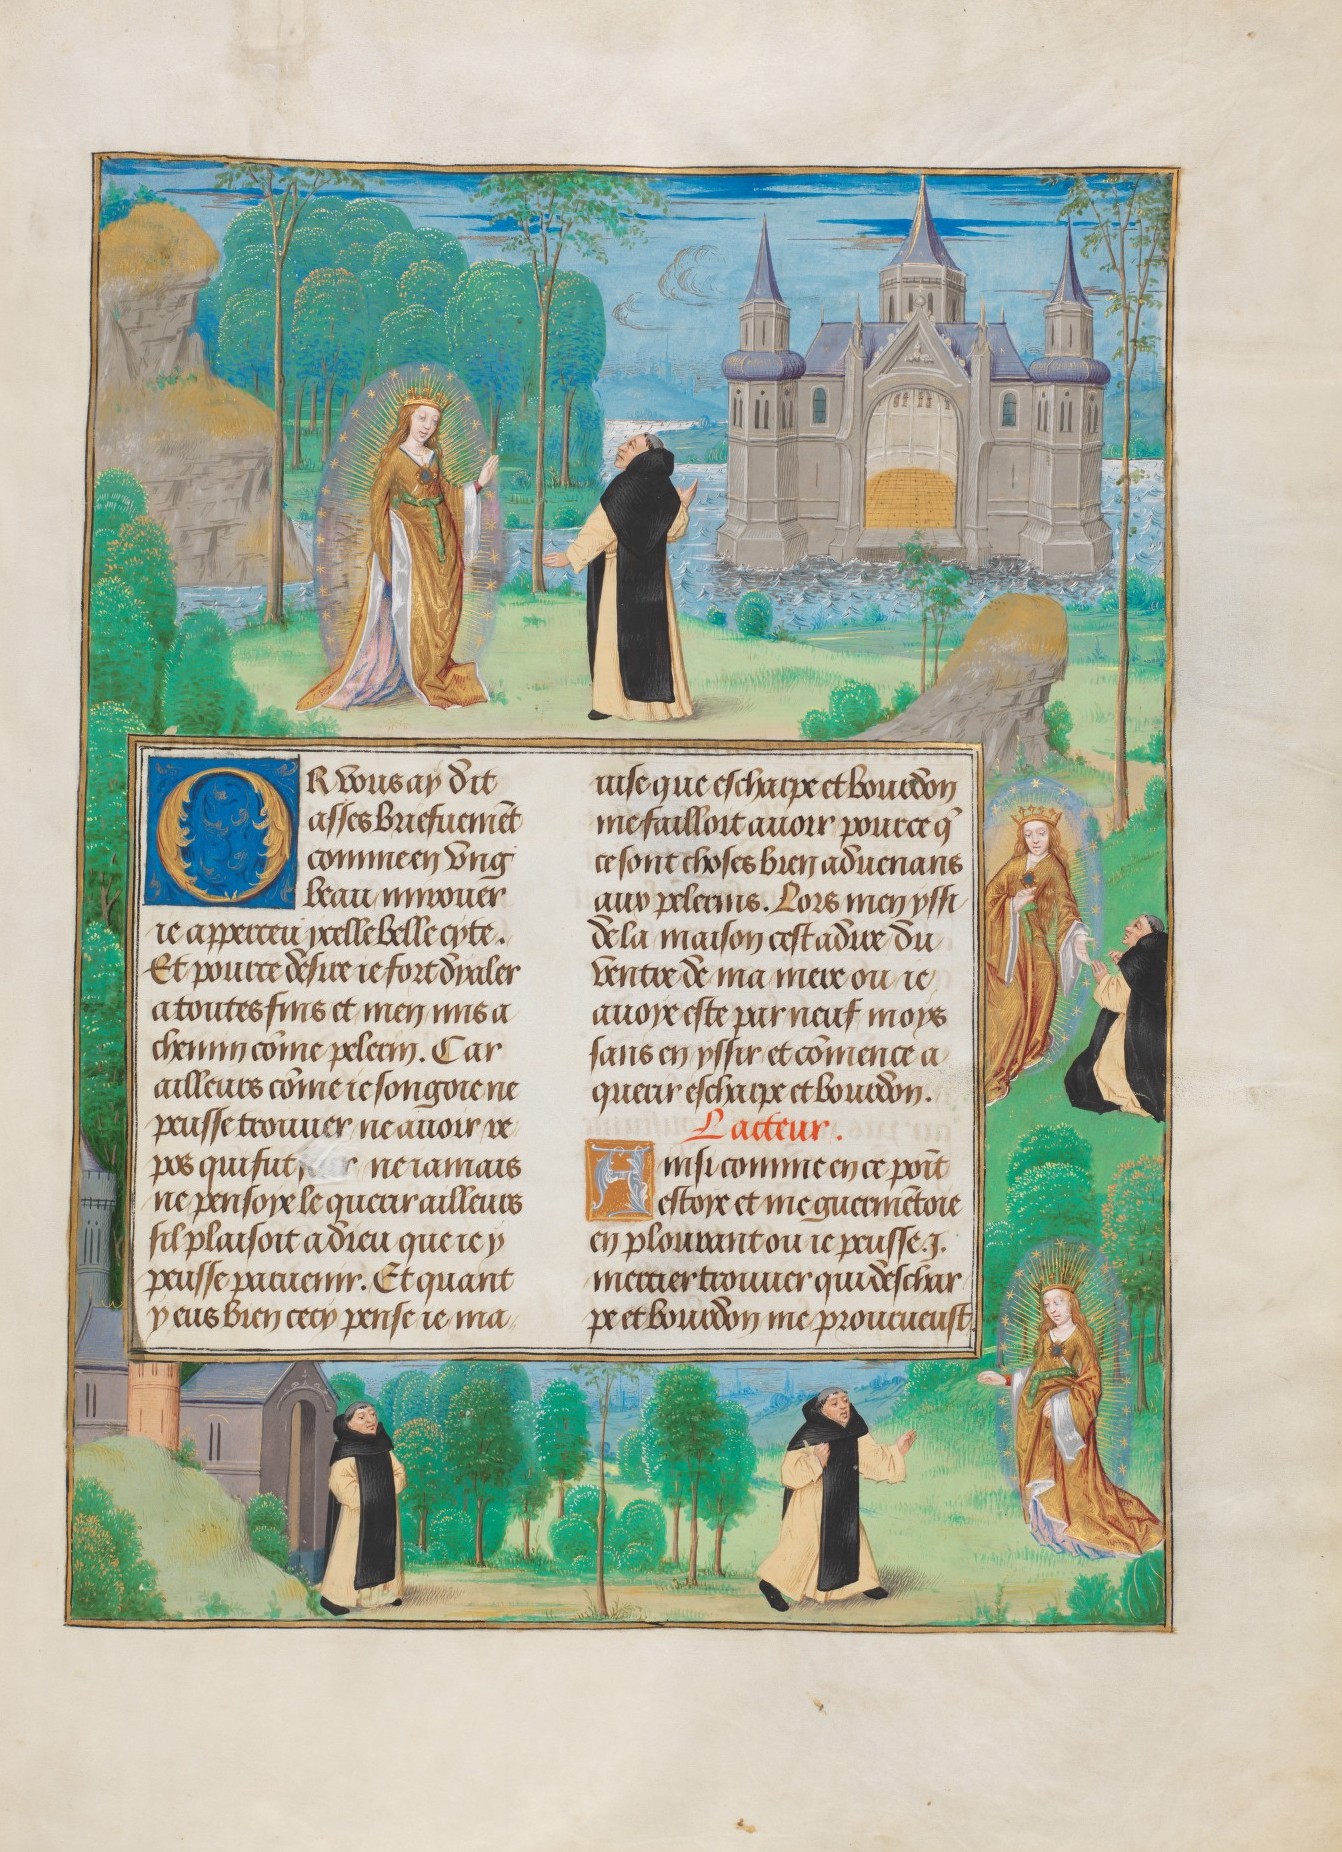 OR vous ay dit
asses briefuemēt
comme en vng
beau mirouer
ie apperceu ycelle belle cyte.
Et pource desire ie fort dy aler
a toutes fins et men mis a
chemin cōme pelerin. Car
ailleurs cōme ie songoie ne
peusse trouuer ne auoir re
pos qui fut ne iamais
ne pensoye le querir ailleurs
sil plaisoit a dieu que ie y
peusse paruenir. Et quant
y eus bien cecy pense ie ma
uise que escharpe et bourdon
me failloit auoir pource q̄
ce sont choses bien aduenans
aux pelerins. Lors men yssi
de la maison cest adire du
ventre de ma mere ou ie
auoye este par neuf moys
sans en yssir et cōmence a
querir escharpe et bourdon.
Lacteur.
Ainsi comme en ce poīt
estoye et me guermētoie
en plourant ou ie peusse .j.
mercier trouuer qui deschar
pe et bourdon me proueust